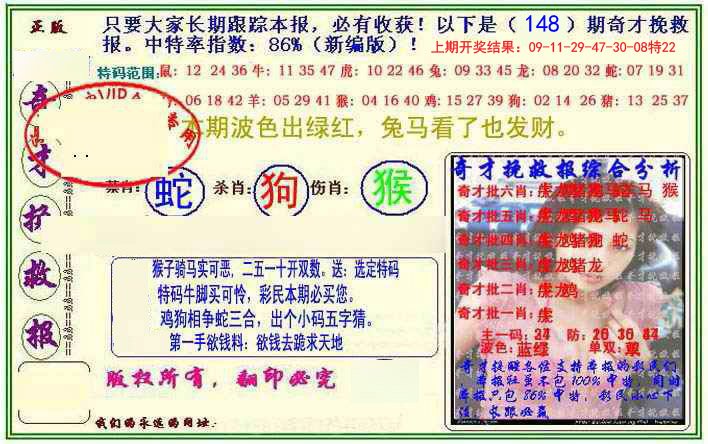 正版
只要大家长期跟踪本报，必有收获！以下是（ 148 ）期奇才挽救
报。中特率指数：86%（新编版）！
上期开奖结果：09-11-29-47-30-08特22
特码范围:鼠: 12 24 36 牛: 11 35 47 虎: 10 22 46 兔: 09 33 45 龙: 08 20 32 蛇: 07 19 31
06 18 42 羊: 05 29 41 猴: 04 16 40 鸡: 15 27 39 狗: 02 14 26 猪: 13 25 37
本期波色出绿红，兔马看了也发财。
禁肖: 蛇 杀肖: 狗 伤肖: 猴
奇
才
救
报
猴子骑马实可恶，二五一十开双数。送：选定特码
特码牛脚买可怜，彩民本期必买您。
鸡狗相争蛇三合，出个小码五字猜。
第一手欲钱料：欲钱去跪求天地
版权所有，翻印必究
我们的永远的网址:
奇才挽救报综合分析
奇才批六肖: 马 猴
奇才批五肖: 蛇 马
奇才批四肖: 蛇
奇才批三肖: 龙
奇才批二肖: 鸡
奇才批一肖:
主一码: 防:
波色: 单双:
奇才挽救各位支持本报的彩民们
本报虽不包100%中特，同时
本报只包86%中特，彩民小心下
注